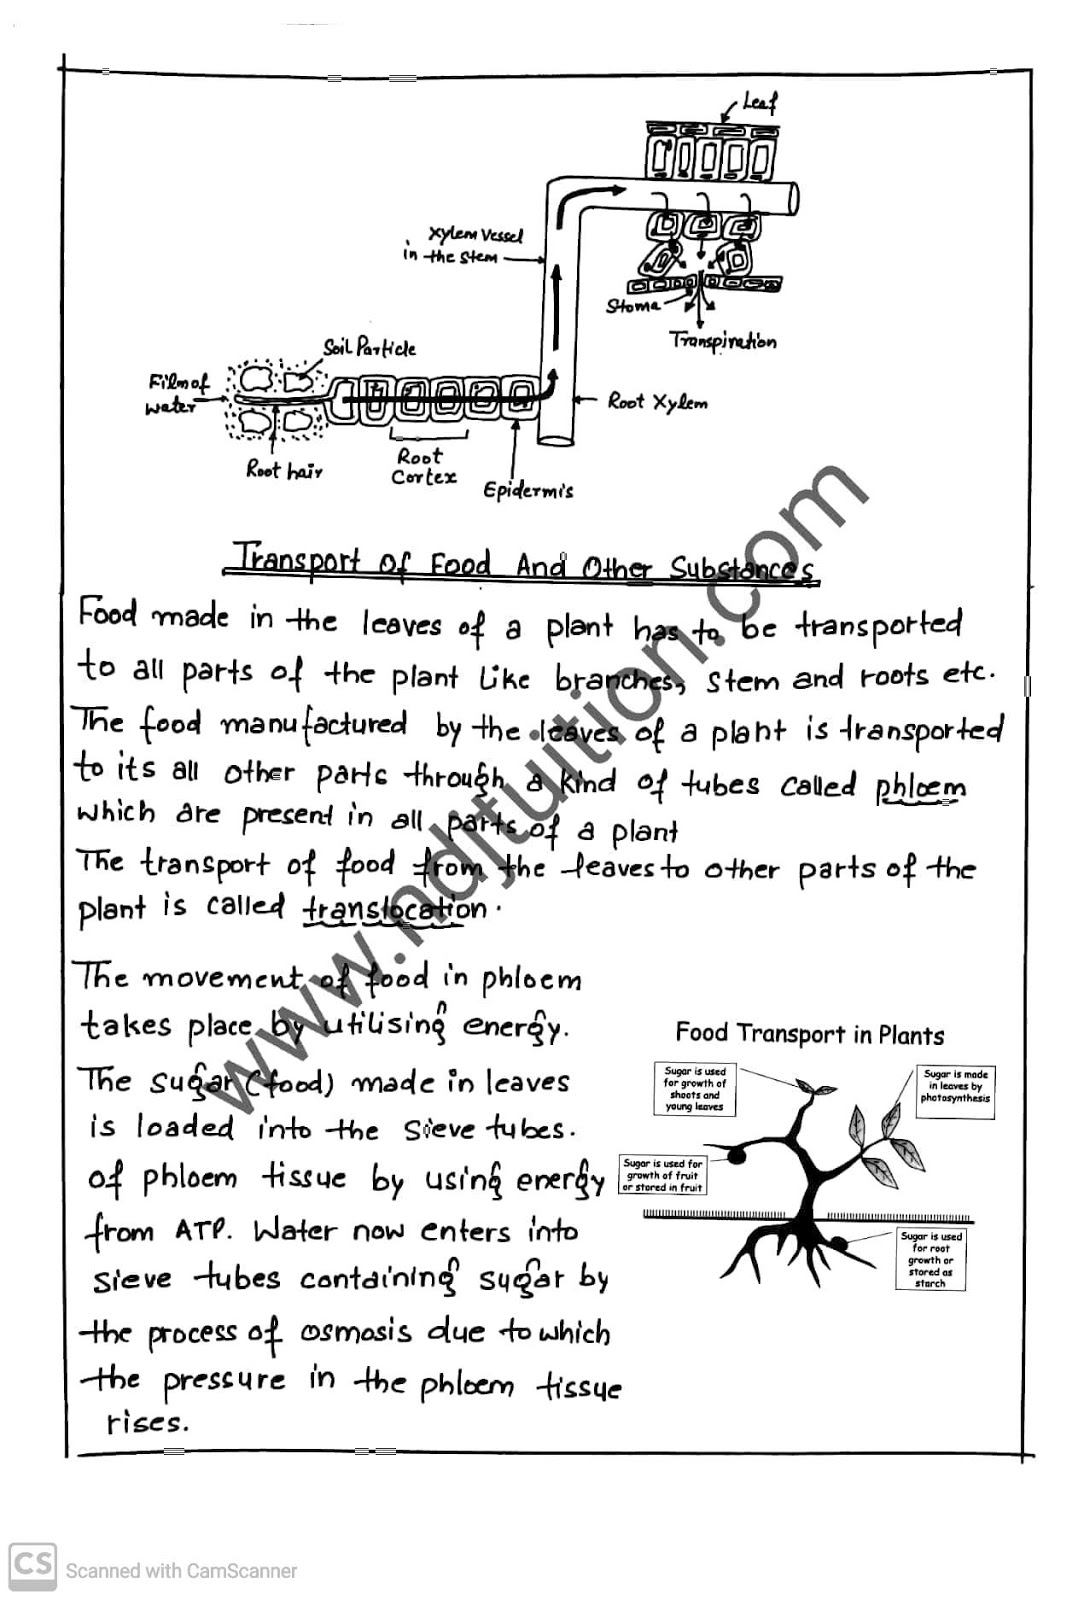 Leaf
Xylem Vessel
in the stem
Stoma
Transpiration
Soil Particle
Film of
water
Root Xylem
Root hair
Root
Cortex
Epidermis
Transport of Food And Other Substances
Food made in the leaves of a plant has to be transported
to all parts of the plant like branches, stem and roots etc.
The food manufactured by the leaves of a plant is transported
to its all other parts through a kind of tubes called phloem
which are present in all parts of a plant
The transport of food from the leaves to other parts of the
plant is called translocation.
The movement of food in phloem
takes place by utilising energy.
The sugar (food) made in leaves
is loaded into the sieve tubes.
of phloem tissue by using energy
from ATP. Water now enters into
sieve tubes containing sugar by
the process of osmosis due to which
the pressure in the phloem tissue
rises.
Food Transport in Plants
Sugar is used
for growth of
shoots and
young leaves
Sugar is made
in leaves by
photosynthesis
Sugar is used for
growth of fruit
or stored in fruit
Sugar is used
for root
growth or
stored as
starch
www.ndjtuition.com
CS Scanned with CamScanner